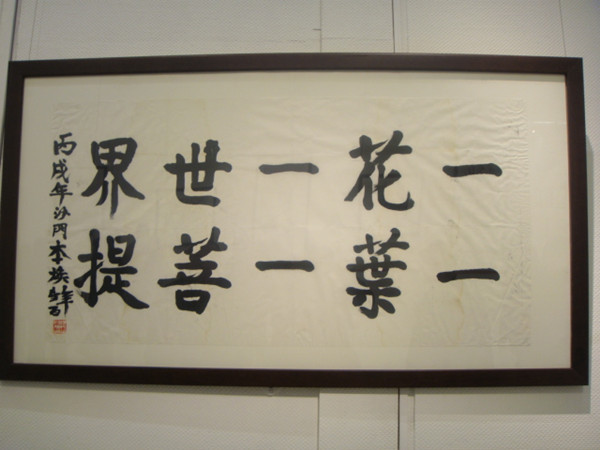 一花一世界
一葉一菩提
丙戌年沙门本焕